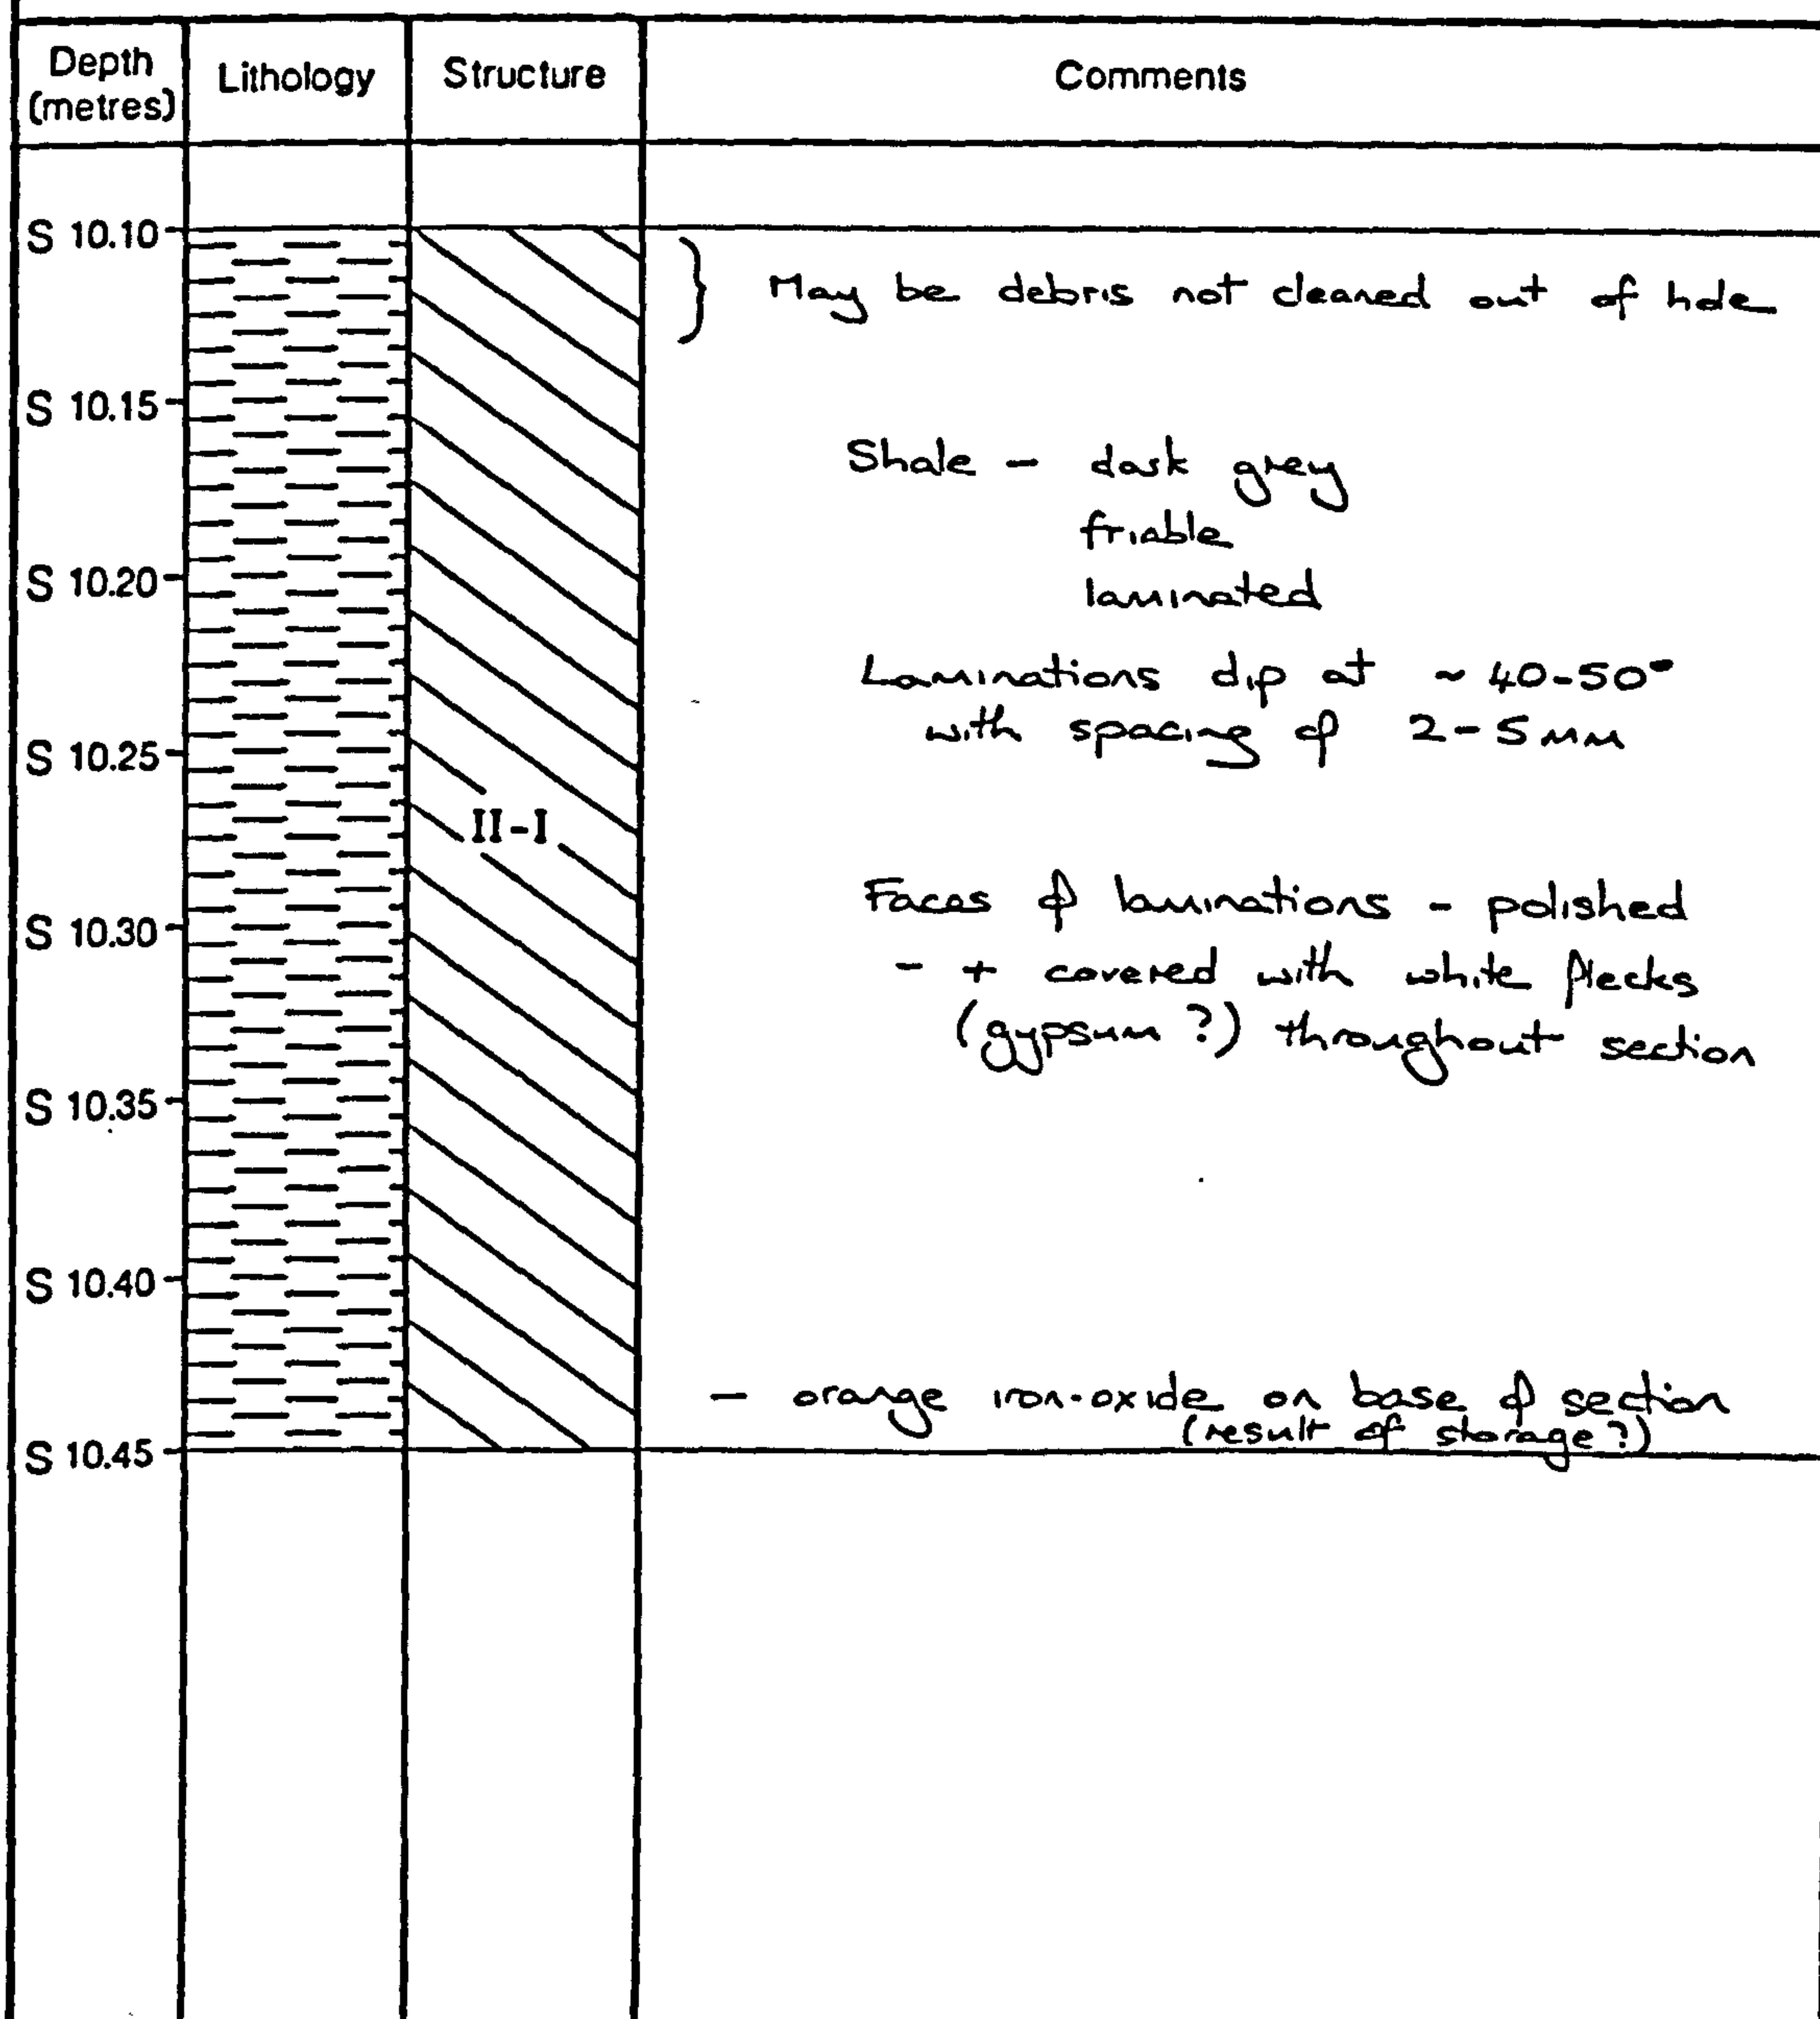 Depth (metres) Lithology Structure Comments
S 10.10
May be debris not cleared out of hole
S 10.15
Shale - dark grey
friable
S 10.20
laminated
Laminations dip at ~ 40-50°
with spacing of 2-5mm
S 10.25
II-I
Faces of laminations - polished
S 10.30
- + covered with white flecks
(gypsum ?) throughout section
S 10.35
S 10.40
- orange iron-oxide on base of section
(result of storage?)
S 10.45